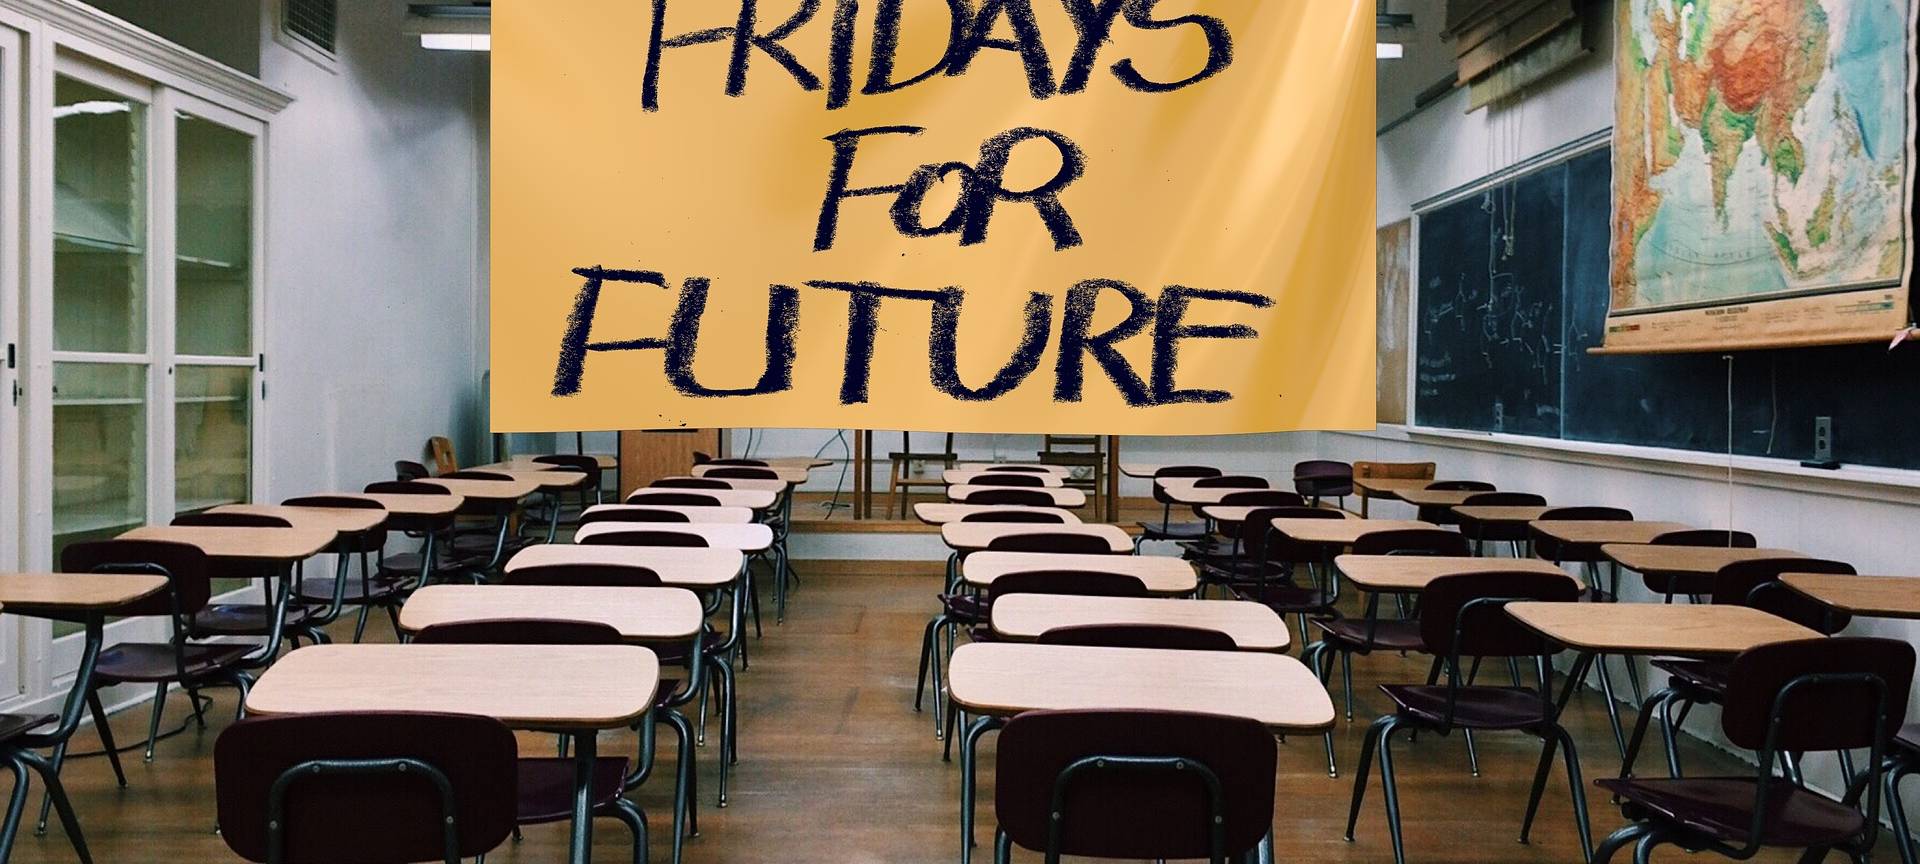 FRIDAYS
FoR
FUTURE